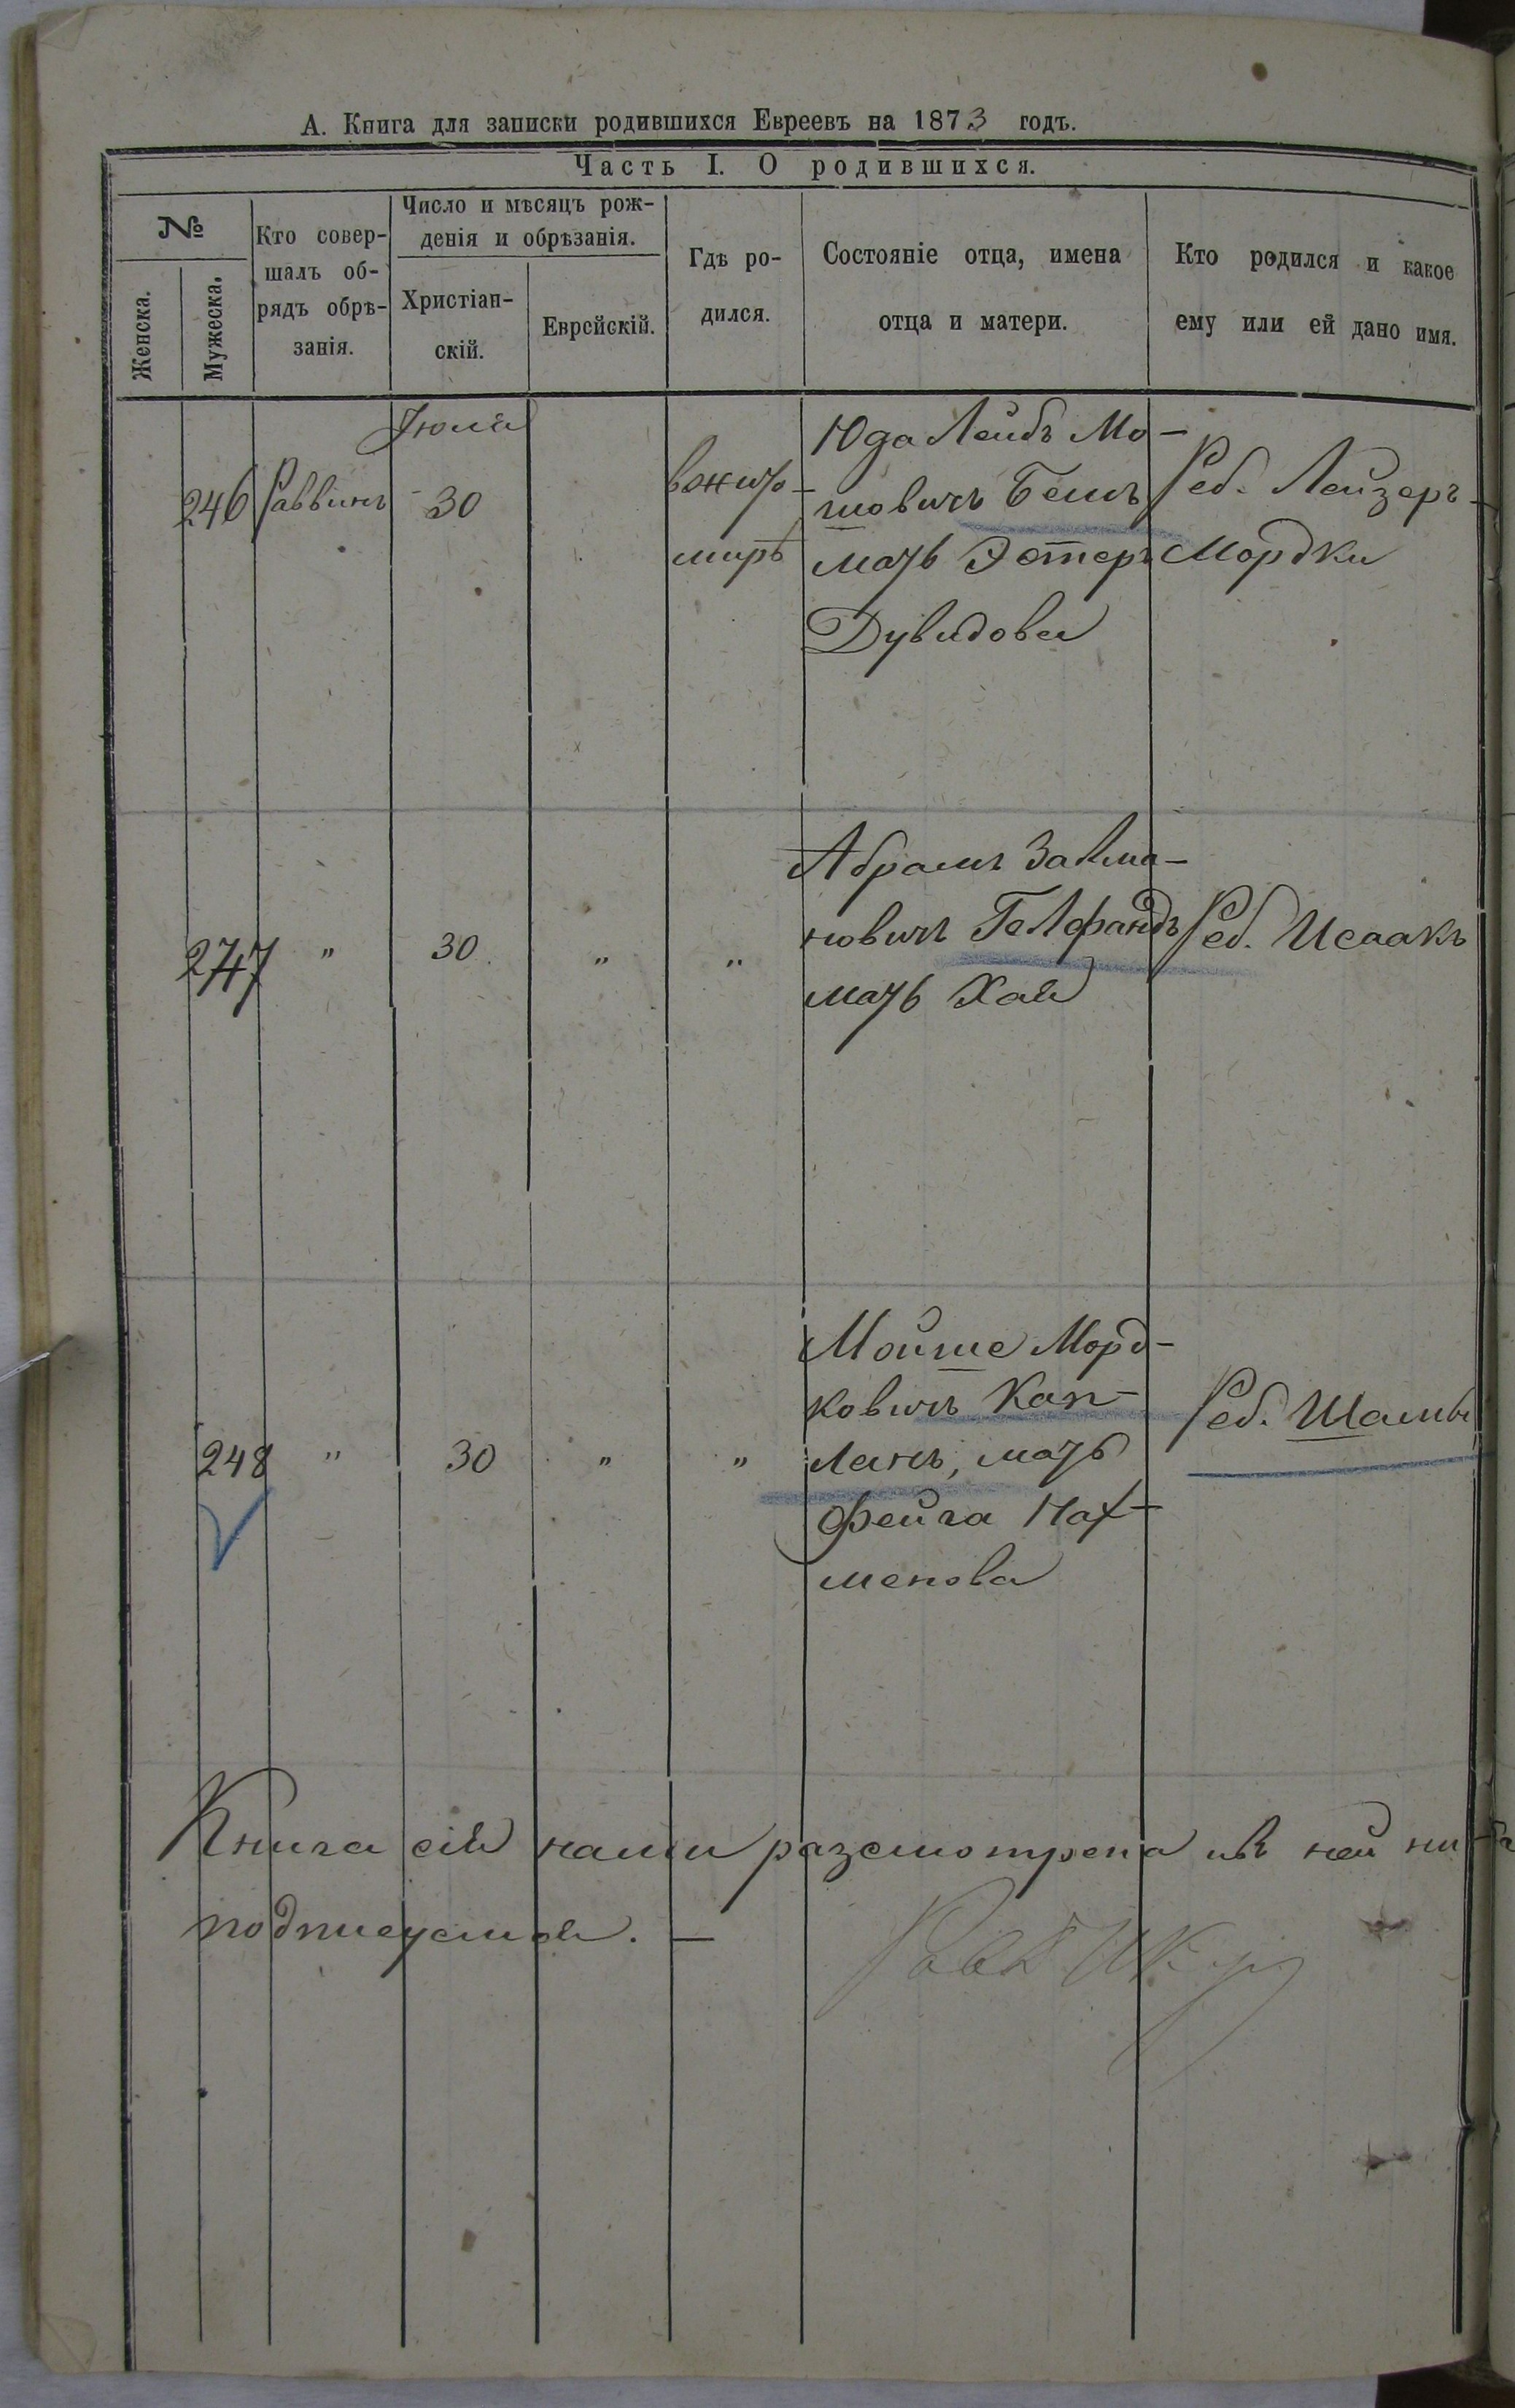 А. Книга для записки родившихся Евреевъ на 1873 годъ.
Часть I. О родившихся.
№
Женска.
Мужеска.
Кто совер-
шалъ об-
рядъ обрѣ-
занія.
Число и мѣсяцъ рож-
денія и обрѣзанія.
Христіан-
скій.
Еврейскій.
Гдѣ ро-
дился.
Состояніе отца, имена
отца и матери.
Кто родился и какое
ему или ей дано имя.
Июля
246 Раввинъ 30
вжито-
мирѣ
Юда Лейбъ Мо-
шовичъ Бемъ
мать Эстеръ
Дувидова
Реб. Лейзеръ-
Мордки
247 " 30 " "
Абрамъ Залма-
новичъ Гелфандъ
мать Хая
Реб. Исаакъ
248 " 30 " "
Мойше Морд-
ковичъ Кап-
ланъ, мать
Фейга Нах-
менова
Реб. Шамы
Книга сія нами разсмотрена ивъ ней
подписуемая. —